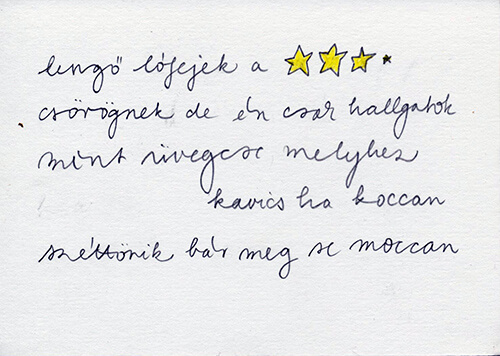 lengő lófejek a
csörögnek de én csak hallgatok
mint üvegcse melyhez
kavics ha koccan
széttörik bár meg se moccan